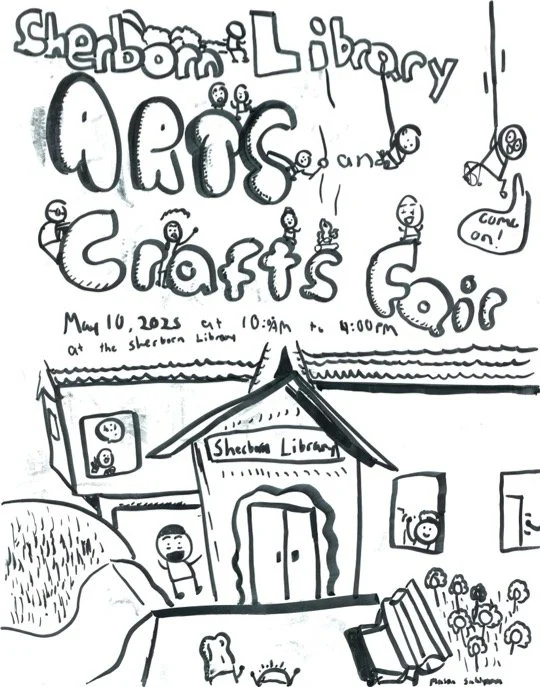 Sherborn Library
ARTS and
Crafts Fair
come on!
May 10, 2025 at 10:00AM to 4:00PM
at the Sherborn Library
Sherborn Library